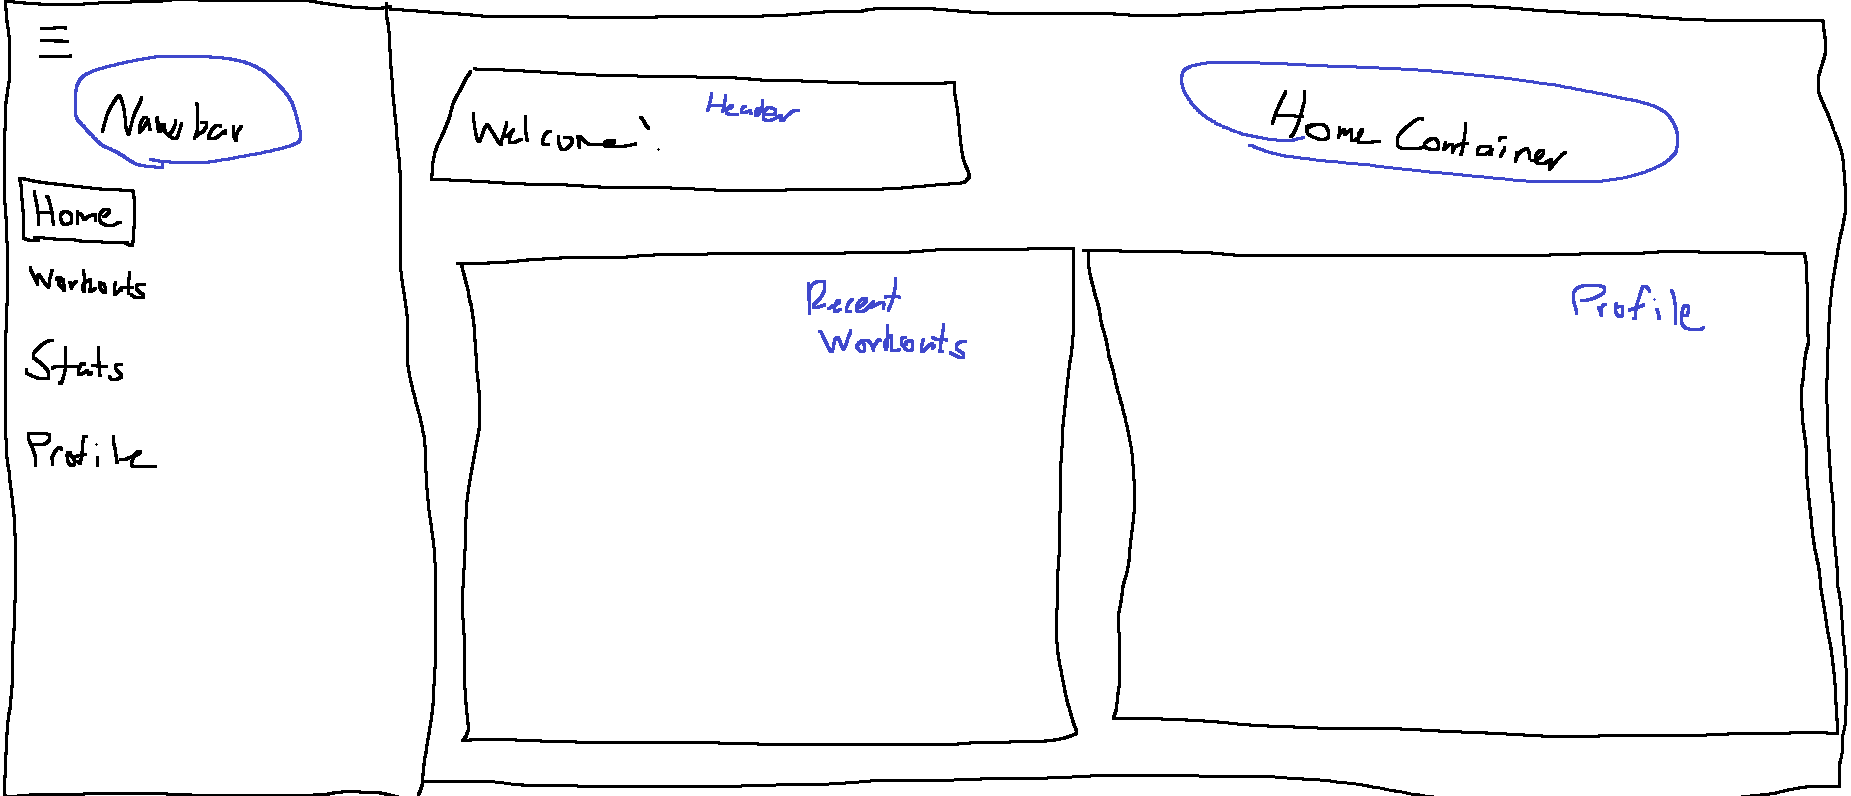 Navbar
Home
Workouts
Stats
Profile
Welcome!
Header
Home Container
Recent
Workouts
Profile